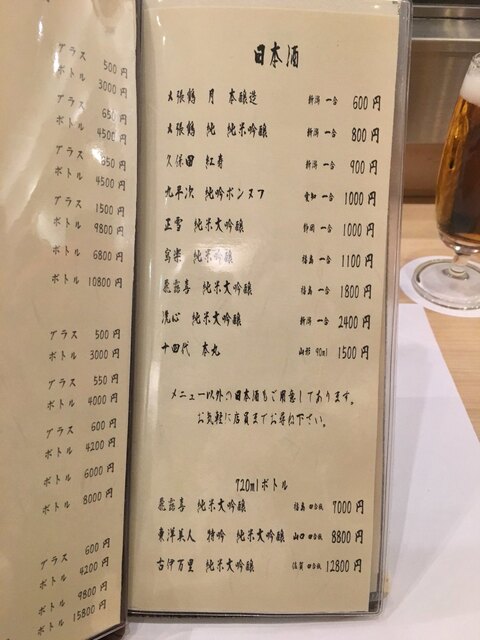 グラス 500円
ボトル 3000円
グラス 650円
ボトル 4500円
グラス 650円
ボトル 4500円
グラス 1500円
ボトル 9800円
ボトル 6800円
ボトル 10800円
グラス 500円
ボトル 3000円
グラス 550円
ボトル 4000円
グラス 600円
ボトル 4200円
ボトル 6000円
ボトル 8000円
グラス 600円
ボトル 4200円
ボトル 9800円
ボトル 15800円
日本酒
〆張鶴 月 本醸造 新潟 一合 600円
〆張鶴 純 純米吟醸 新潟 一合 800円
久保田 紅寿 新潟 一合 900円
九平次 純吟ボンヌフ 愛知 一合 1000円
正雪 純米大吟醸 静岡 一合 1000円
寫樂 純米吟醸 福島 一合 1100円
飛露喜 純米大吟醸 福島 一合 1800円
洗心 純米大吟醸 新潟 一合 2400円
十四代 本丸 山形 90ml 1500円
メニュー以外の日本酒もご用意してあります。
お気軽に店員までお尋ね下さい。
720mlボトル
飛露喜 純米大吟醸 福島 四合瓶 7000円
東洋美人 特吟 純米大吟醸 山口 四合瓶 8800円
古伊万里 純米大吟醸 佐賀 四合瓶 12800円